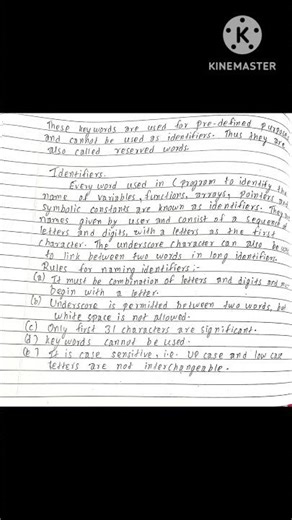 KINEMASTER
These keywords are used for pre-defined purpose
and cannot be used as identifiers. Thus they are
also called reserved words.
Identifiers.
Every word used in C program to identify the
name of variables, functions, arrays, pointers and
symbolic constants are known as identifiers. They are
names given by user and consist of a sequence of
letters and digits, with a letters as the first
character. The underscore character can also be used
to link between two words in long identifiers.
Rules for naming identifiers:-
(a) It must be combination of letters and digits and must
begin with a letter.
(b) Underscore is permitted between two words, but
white space is not allowed.
(c) Only first 31 characters are significant.
(d) Keywords cannot be used.
(e) It is case sensitive, i.e. UP case and low case
letters are not interchangeable.